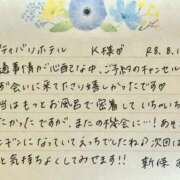 ティバリホテル K様 R8.8.1
通事情が心配な中、ご予約のキャンセル
ず会いに来てださり嬉しかったです
当はもっとお風呂で密着していちゃいち
たかったですが、またの機会に！あそこ
ンギンになってえっちでしたね♪ 次回は
と気持ちよくしてみせます!!
新條